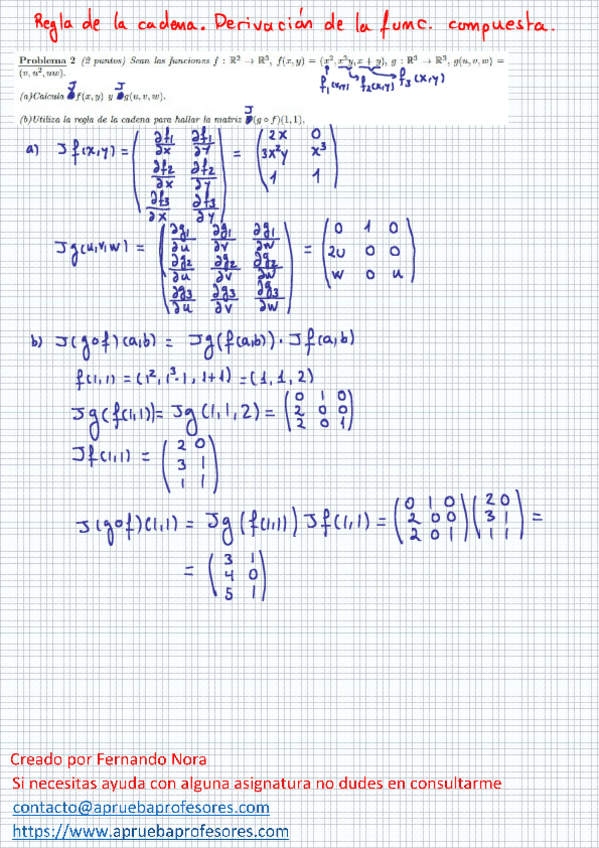 Regla de la cadena. Derivación de la func. compuesta.
Problema 2 (2 puntos) Sean las funciones f : ℝ² → ℝ³, f(x, y) = (x², x³y, x + y), g : ℝ³ → ℝ³, g(u, v, w) =
(v, u², uw).
f₁(x,y) f₂(x,y) f₃(x,y)
(a)Calcula J f(x, y) y J g(u, v, w).
(b)Utiliza la regla de la cadena para hallar la matriz J (g ∘ f)(1, 1).
a) Jf(x,y) = ( ∂f₁/∂x ∂f₁/∂y ; ∂f₂/∂x ∂f₂/∂y ; ∂f₃/∂x ∂f₃/∂y ) = ( 2x 0 ; 3x²y x³ ; 1 1 )
Jg(u,v,w) = ( ∂g₁/∂u ∂g₁/∂v ∂g₁/∂w ; ∂g₂/∂u ∂g₂/∂v ∂g₂/∂w ; ∂g₃/∂u ∂g₃/∂v ∂g₃/∂w ) = ( 0 1 0 ; 2u 0 0 ; w 0 u )
b) J(g∘f)(a,b) = Jg(f(a,b)) · Jf(a,b)
f(1,1) = (1², 1³·1, 1+1) = (1, 1, 2)
Jg(f(1,1)) = Jg(1,1,2) = ( 0 1 0 ; 2 0 0 ; 2 0 1 )
Jf(1,1) = ( 2 0 ; 3 1 ; 1 1 )
J(g∘f)(1,1) = Jg(f(1,1)) Jf(1,1) = ( 0 1 0 ; 2 0 0 ; 2 0 1 ) ( 2 0 ; 3 1 ; 1 1 ) =
= ( 3 1 ; 4 0 ; 5 1 )
Creado por Fernando Nora
Si necesitas ayuda con alguna asignatura no dudes en consultarme
contacto@apruebaprofesores.com
https://www.apruebaprofesores.com